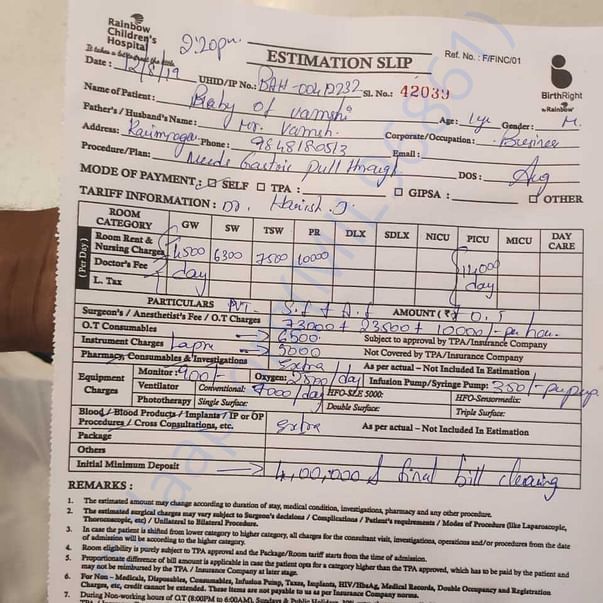 Rainbow
Children's
Hospital
It takes a lot to treat the little
2:20pm.
ESTIMATION SLIP
Ref. No. : F/FINC/01
BirthRight
by Rainbow
Date : 12/8/19
UHID/IP No.: BAH-00412232 Sl. No.: 42039
Name of Patient : Baby of vamshi Age : 1yr Gender : M.
Father's / Husband's Name : Mr. Vamsh. Corporate/Occupation :
Address: Karimnagar Phone : 9848180513 Email :
Procedure/Plan: Needs Gastric Pull through DOS : Aug
MODE OF PAYMENT: SELF TPA : GIPSA : OTHER
TARIFF INFORMATION : Dr. Harish. J.
ROOM CATEGORY GW SW TSW PR DLX SDLX NICU PICU MICU DAY CARE
(Per Day)
Room Rent & Nursing Charges 4500 6300 7500 10000 14000
Doctor's Fee day day
L. Tax
PARTICULARS PVT - S.f & A.f AMOUNT (₹) O.T
Surgeon's / Anesthetist's Fee / O.T Charges 73000 + 23500 + 10000/- per hour.
O.T Consumables 6500 Subject to approval by TPA/Insurance Company
Instrument Charges Lapro 5000 Not Covered by TPA/Insurance Company
Pharmacy, Consumables & Investigations Extra As per actual – Not Included In Estimation
Equipment Charges
Monitor: 900/- Oxygen: 2500/day Infusion Pump/Syringe Pump: 350/- pupup
Ventilator Conventional: 7000/day HFO-SLE 5000: HFO-Sensormedix:
Phototherapy Single Surface: Double Surface: Triple Surface:
Blood / Blood Products / Implants / IP or OP
Procedures / Cross Consultations, etc. Extra As per actual – Not Included In Estimation
Package
Others
Initial Minimum Deposit 4,00,000 & final bill clearing
REMARKS :
1. The estimated amount may change according to duration of stay, medical condition, investigations, pharmacy and any other procedure.
2. The estimated surgical charges may vary subject to Surgeon's decisions / Complications / Patient's requirements / Modes of Procedure (like Laparoscopic, Thoroscopic, etc) / Unilateral to Bilateral Procedure.
3. In case the patient is shifted from lower category to higher category, all charges for the consultant visit, investigations, operations and/or procedures from the date of admission will be according to the higher category.
4. Room eligibility is purely subject to TPA approval and the Package/Room tariff starts from the time of admission.
5. Proportionate difference of bill amount is applicable in case the patient opts for a category higher than the TPA approved, which has to be paid by the patient and may not be reimbursed by the TPA / Insurance Company at later stage.
6. For Non – Medicals, Disposables, Consumables, Infusion Pump, Taxes, Implants, HIV/HbsAg, Medical Records, Double Occupancy and Registration Charges, etc, credit cannot be extended. These are not payable to us as per Insurance Company norms.
7. During Non-working hours of O.T (8:00PM to 6:00AM), Sundays & Public